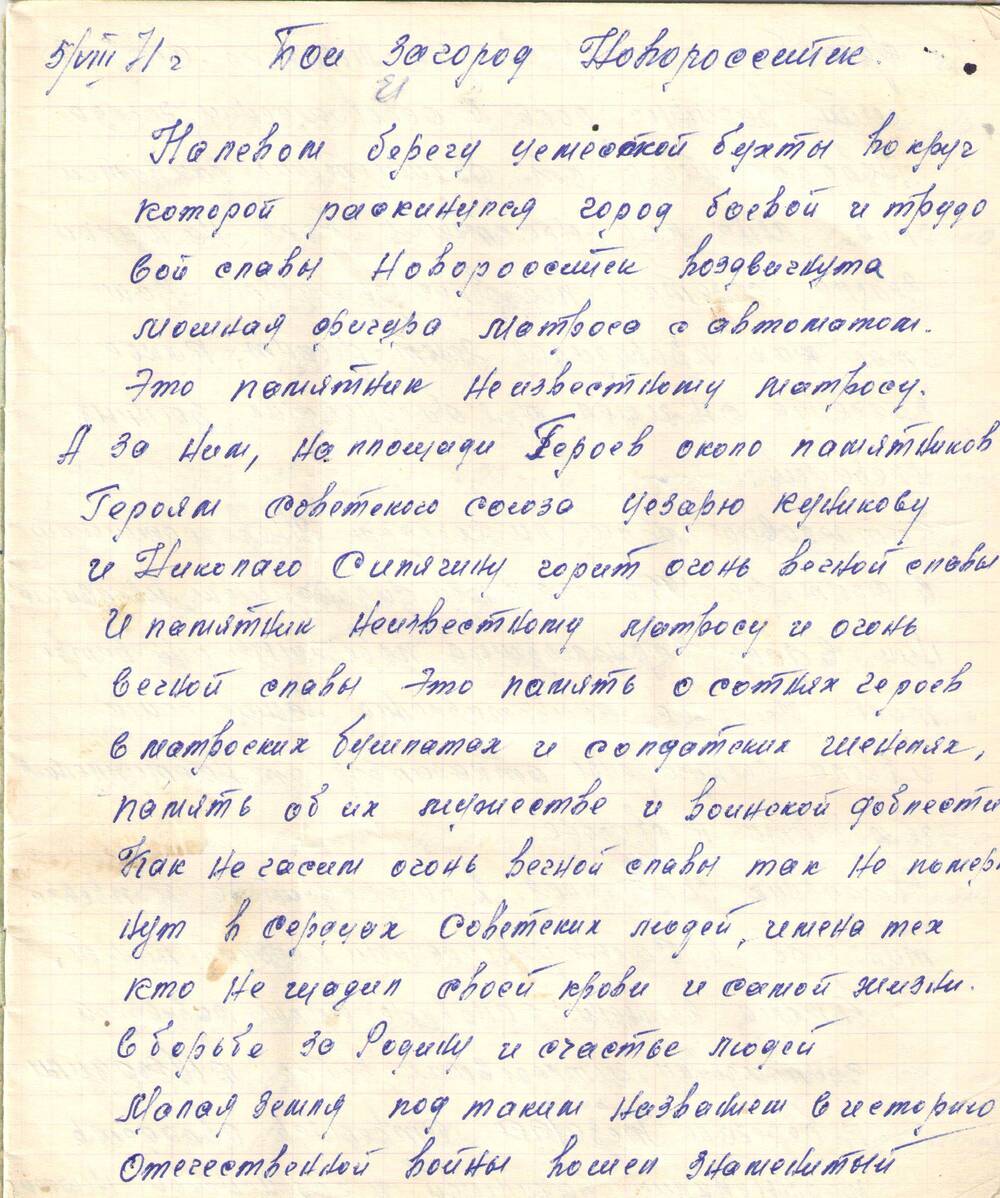 5/VIII 71 г Бои Загород Новороссийск.
На левом берегу цемесской бухты вокруг
которой раскинулся город боевой и трудо
вой славы Новороссийск воздвигнута
мощная фигура матроса с автоматом.
Это памятник неизвестному матросу.
А за ним, на площади Героев около памятников
Героям советского союза цезарю куникову
и Николаю Сипягину горит огонь вечной славы
И памятник неизвестному матросу и огонь
вечной славы Это память о сотнях героев
в матроских бушлатах и солдатских шенелях,
память об их мужестве и воинской доблести
Как не гасим огонь вечной славы так не померк
нут в сердцах Советских людей, имена тех
кто не щадил своей крови и самой жизни.
в борьбе за Родину и счастье людей
Малая земля под таким названием в историю
Отечественной войны вошел знаменитый